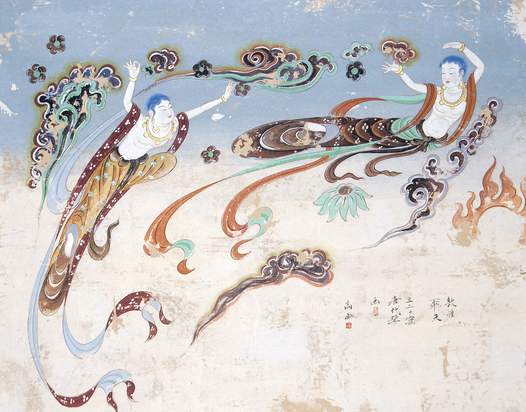 敦煌
飛天
三二〇窟
唐代壁
画